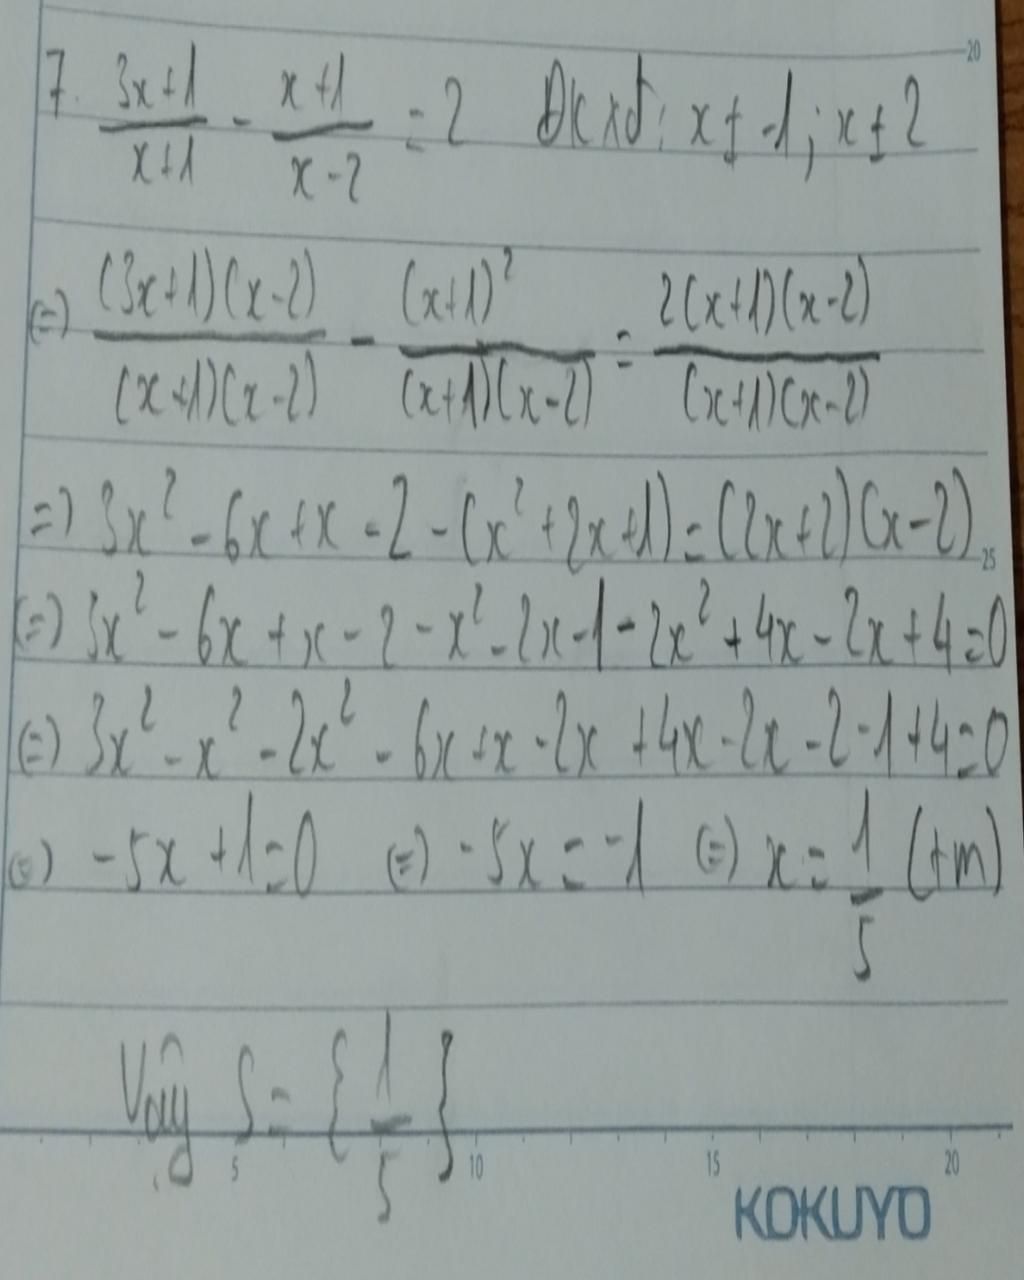 20
7. (3x+1)/(x+1) - (x+1)/(x-2) = 2 Đkxđ: x ≠ -1; x ≠ 2
(=) ((3x+1)(x-2))/((x+1)(x-2)) - (x+1)²/((x+1)(x-2)) = (2(x+1)(x-2))/((x+1)(x-2))
=) 3x² - 6x + x - 2 - (x² + 2x + 1) = (2x+2)(x-2)
25
(=) 3x² - 6x + x - 2 - x² - 2x - 1 - 2x² + 4x - 2x + 4 = 0
(=) 3x² - x² - 2x² - 6x + x - 2x + 4x - 2x - 2 - 1 + 4 = 0
(=) -5x + 1 = 0 (=) -5x = -1 (=) x = 1/5 (tm)
Vậy S = {1/5}
5 10 15 20
KOKUYO